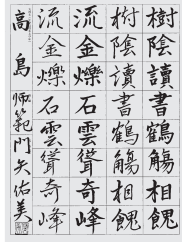 樹陰讀書鶴觴相餽
樹陰讀書鶴觴相餽
流金爍石雲聳奇峰
流金爍石雲聳奇峰
高島師範門矢佑美